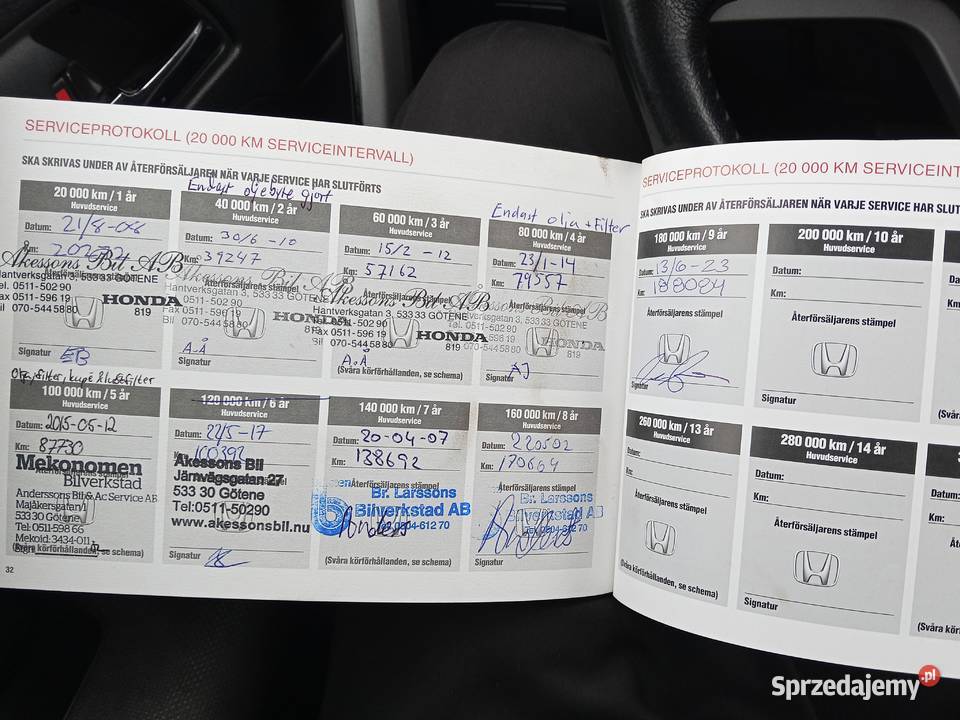 SERVICEPROTOKOLL (20 000 KM SERVICEINTERVALL)
SKA SKRIVAS UNDER AV ÅTERFÖRSÄLJAREN NÄR VARJE SERVICE HAR SLUTFÖRTS
20 000 km / 1 år
Huvudservice
Datum: 21/8-08
Km:
Åkessons Bil AB
Hantverksgatan 3, 533 33 GÖTENE
Tel. 0511-502 90
0511-596 19
070-544 58 80
HONDA
819
Signatur EB
Endast oljebyte gjort
40 000 km / 2 år
Huvudservice
Datum: 30/6-10
Km: 39247
Åkessons Bil AB
Hantverksgatan 3, 533 33 GÖTENE
Tel. 0511-502 90
0511-596 19
Bil 070-544 58 80
HONDA
819
A.Å
Signatur
60 000 km / 3 år
Huvudservice
Datum: 15/2-12
Km: 57162
Återförsäljarens stämpel
Åkessons Bil AB
Hantverksgatan 3, 533 33 GÖTENE
0511-502 90
0511-596 19
070-544 58 80
HONDA
819
A.Å
(Svåra körförhållanden, se schema)
Endast olja + Filter
80 000 km / 4 år
Huvudservice
Datum: 23/1-14
Km: 79557
Återförsäljarens stämpel
Åkessons Bil AB
Hantverksgatan 3, 533 33 GÖTENE
Tel. 0511-502 90
0511-596 19
070-544 58 80
HONDA
819
Signatur AJ
100 000 km / 5 år
Huvudservice
Datum: 2015-05-12
Km: 87730
Mekonomen
Bilverkstad
Anderssons Bil & Ac Service AB
Majåkersgatan
533 Götene
Tel: 0511-598 65
Mekoid: 3434-011
(Svåra körförhållanden, se schema)
120 000 km / 6 år
Huvudservice
Datum: 22/5-17
Km: 100392
Åkessons Bil
Järnvägsgatan 27
533 30 Götene
Tel:0511-50290
www.akessonsbil.nu
Signatur
140 000 km / 7 år
Huvudservice
Datum: 20-04-07
Km: 138692
Br. Larssons
Bilverkstad AB
(Svåra körförhållanden, se schema)
160 000 km / 8 år
Huvudservice
Datum: 220502
Km: 170604
Återförsäljarens stämpel
Br. Larssons
Bilverkstad AB
Signatur
32
SERVICEPROTOKOLL (20 000 KM SERVICEINT
SKA SKRIVAS UNDER AV ÅTERFÖRSÄLJAREN NÄR VARJE SERVICE HAR SLUT
180 000 km / 9 år
Huvudservice
Datum: 13/6-23
Km: 188084
Återförsäljarens stämpel
Signatur
200 000 km / 10 år
Huvudservice
Datum:
Km:
Återförsäljarens stämpel
Signatur
260 000 km / 13 år
Huvudservice
Datum:
Km:
Återförsäljarens stämpel
(Svåra körförhållanden, se schema)
280 000 km / 14 år
Huvudservice
Datum:
Km:
Återförsäljarens stämpel
Signatur
Datum:
Km:
(Svåra kör
Sprzedajemy.pl